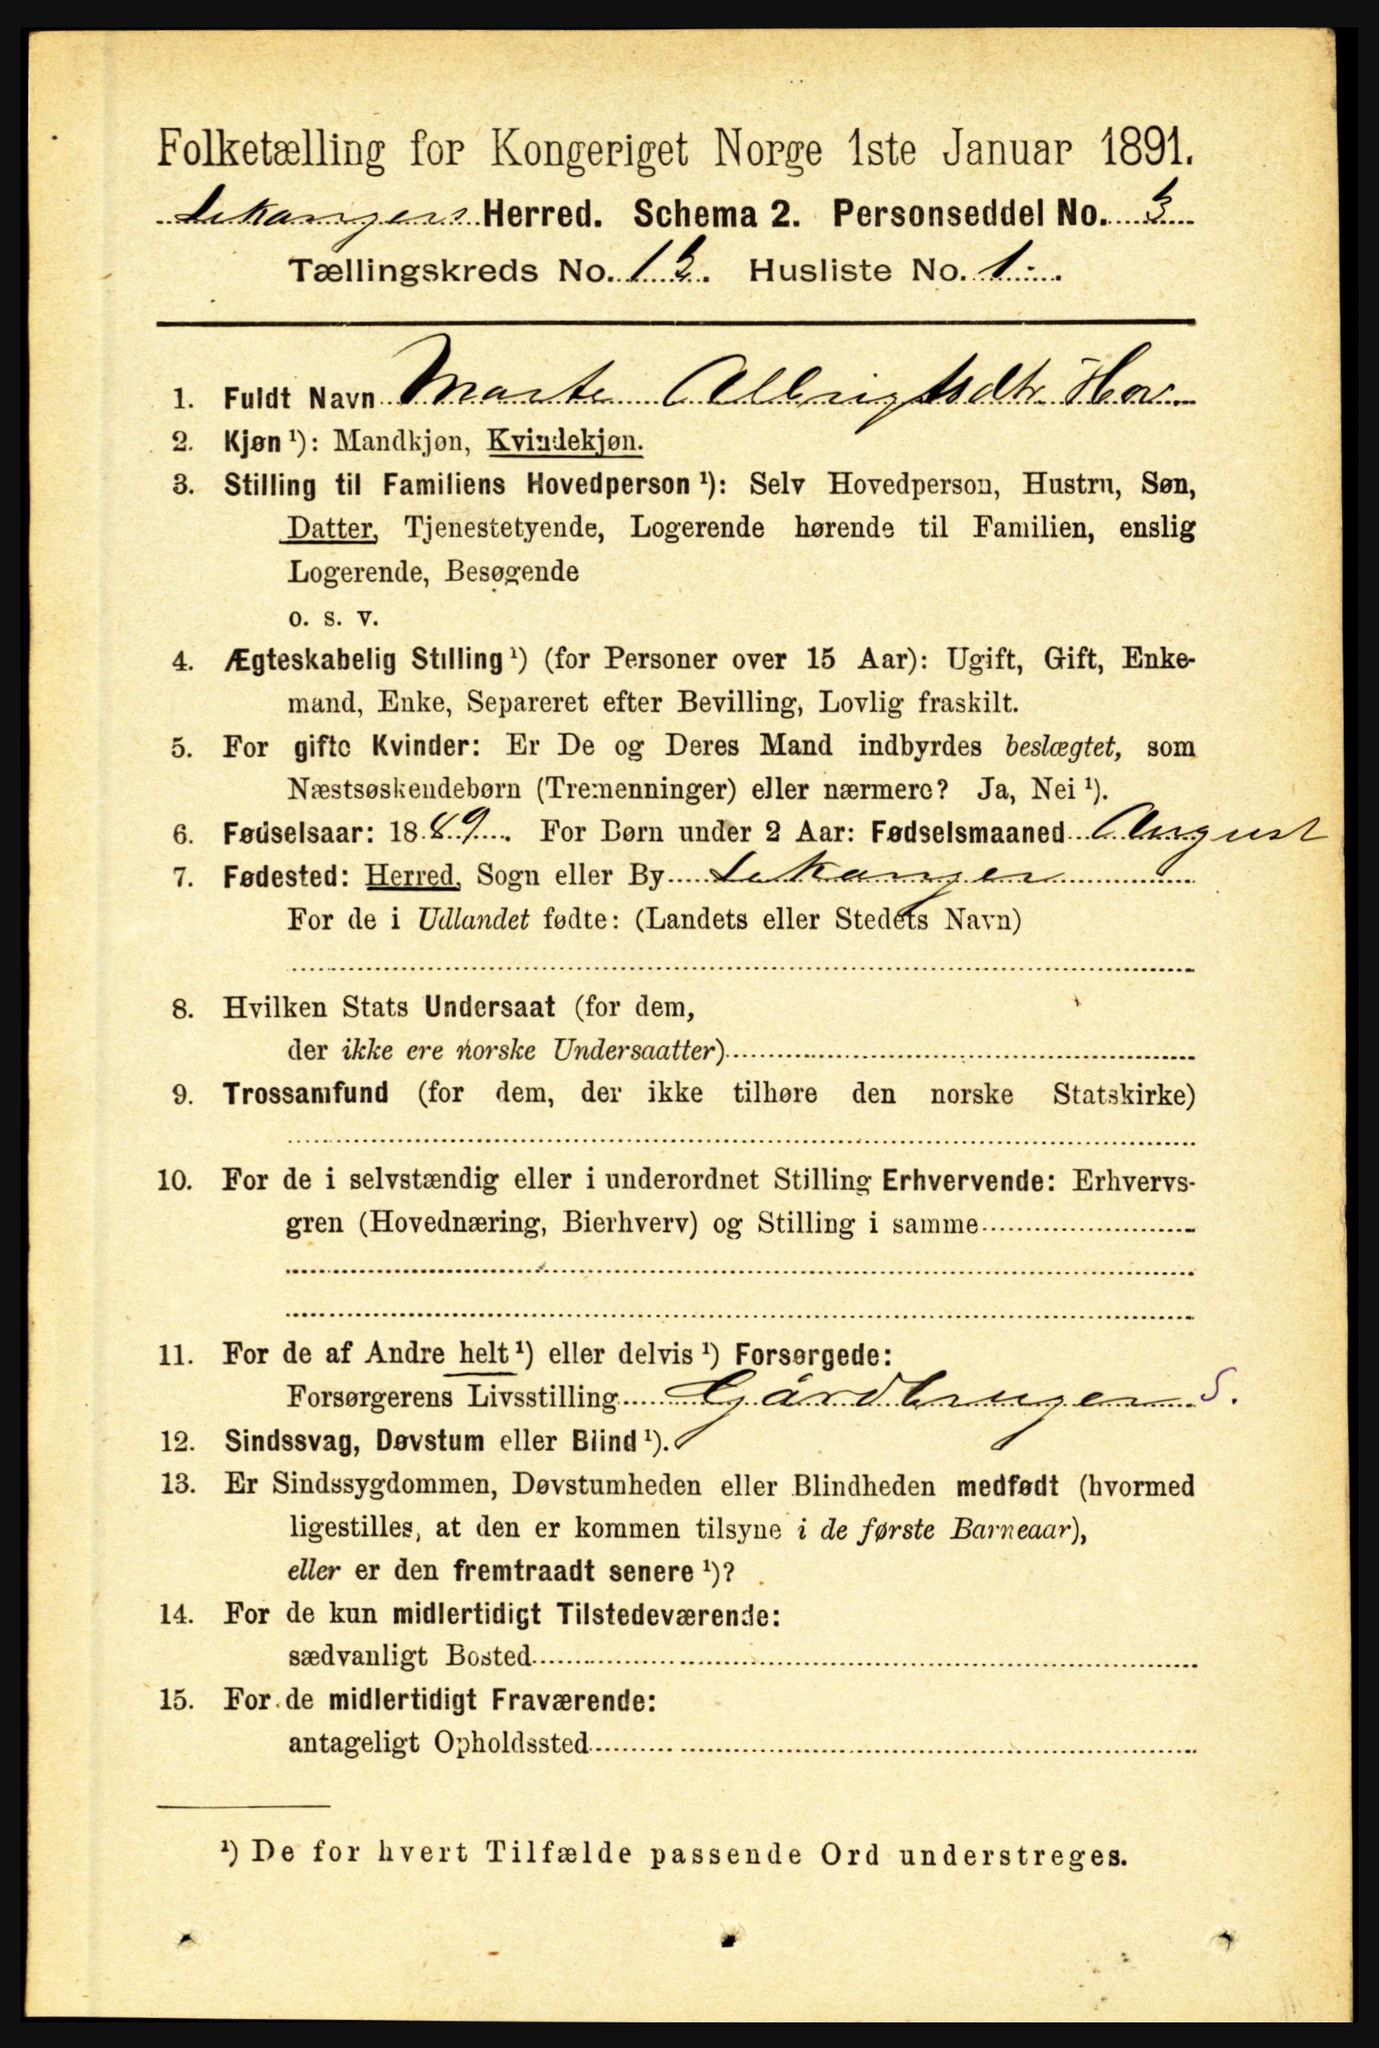 Folketælling for Kongeriget Norge 1ste Januar 1891.
Lekangers Herred. Schema 2. Personseddel No. 3
Tællingskreds No. 13. Husliste No. 1.
1. Fuldt Navn Marte Albrigtsdtr Hov
2. Kjøn ¹): Mandkjøn, Kvindekjøn.
3. Stilling til Familiens Hovedperson ¹): Selv Hovedperson, Hustru, Søn,
Datter, Tjenestetyende, Logerende hørende til Familien, enslig
Logerende, Besøgende
o. s. v.
4. Ægteskabelig Stilling ¹) (for Personer over 15 Aar): Ugift, Gift, Enke-
mand, Enke, Separeret efter Bevilling, Lovlig fraskilt.
5. For gifte Kvinder: Er De og Deres Mand indbyrdes beslægtet, som
Næstsøskendebørn (Tremenninger) eller nærmere? Ja, Nei ¹).
6. Fødselsaar: 1889. For Børn under 2 Aar: Fødselsmaaned August
7. Fødested: Herred, Sogn eller By Lekanger
For de i Udlandet fødte: (Landets eller Stedets Navn)
8. Hvilken Stats Undersaat (for dem,
der ikke ere norske Undersaatter)
9. Trossamfund (for dem, der ikke tilhøre den norske Statskirke)
10. For de i selvstændig eller i underordnet Stilling Erhvervende: Erhvervs-
gren (Hovednæring, Bierhverv) og Stilling i samme
11. For de af Andre helt ¹) eller delvis ¹) Forsørgede:
Forsørgerens Livsstilling Gårdbruger S.
12. Sindssvag, Døvstum eller Blind ¹).
13. Er Sindssygdommen, Døvstumheden eller Blindheden medfødt (hvormed
ligestilles, at den er kommen tilsyne i de første Barneaar),
eller er den fremtraadt senere ¹)?
14. For de kun midlertidigt Tilstedeværende:
sædvanligt Bosted
15. For de midlertidigt Fraværende:
antageligt Opholdssted
¹) De for hvert Tilfælde passende Ord understreges.